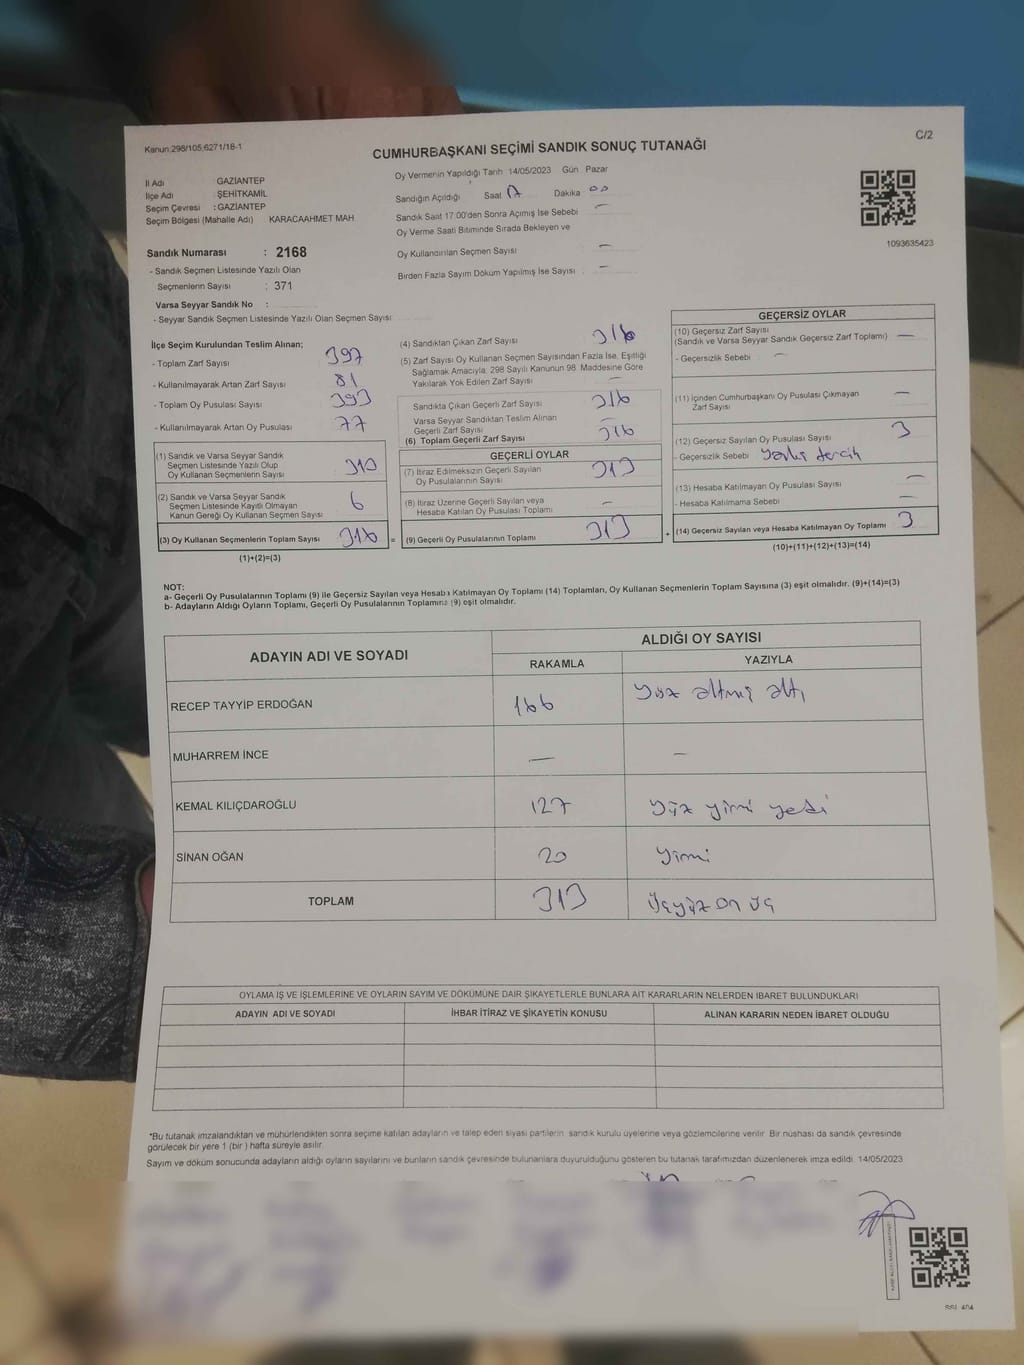 Kanun:298/105,6271/18-1
C/2
CUMHURBAŞKANI SEÇİMİ SANDIK SONUÇ TUTANAĞI
İl Adı : GAZİANTEP
İlçe Adı : ŞEHİTKAMİL
Seçim Çevresi : GAZİANTEP
Seçim Bölgesi (Mahalle Adı) KARACAAHMET MAH
Sandık Numarası : 2168
- Sandık Seçmen Listesinde Yazılı Olan
Seçmenlerin Sayısı : 371
Varsa Seyyar Sandık No :
- Seyyar Sandık Seçmen Listesinde Yazılı Olan Seçmen Sayısı
Oy Vermenin Yapıldığı Tarih 14/05/2023 Gün Pazar
Sandığın Açıldığı Saat 17 Dakika 00
Sandık Saat 17:00'den Sonra Açımış İse Sebebi —
Oy Verme Saati Bitiminde Sırada Bekleyen ve
Oy Kullandırılan Seçmen Sayısı —
Birden Fazla Sayım Döküm Yapılmış İse Sayısı —
1093635423
İlçe Seçim Kurulundan Teslim Alınan;
- Toplam Zarf Sayısı 397
- Kullanılmayarak Artan Zarf Sayısı 81
- Toplam Oy Pusulası Sayısı 393
- Kullanılmayarak Artan Oy Pusulası 77
(1) Sandık ve Varsa Seyyar Sandık
Seçmen Listesinde Yazılı Olup
Oy Kullanan Seçmenlerin Sayısı 310
(2) Sandık ve Varsa Seyyar Sandık
Seçmen Listesinde Kayıtlı Olmayan
Kanun Gereği Oy Kullanan Seçmen Sayısı 6
(3) Oy Kullanan Seçmenlerin Toplam Sayısı 316 =
(1)+(2)=(3)
(4) Sandıktan Çıkan Zarf Sayısı 316
(5) Zarf Sayısı Oy Kullanan Seçmen Sayısından Fazla İse, Eşitliği
Sağlamak Amacıyla, 298 Sayılı Kanunun 98. Maddesine Göre
Yakılarak Yok Edilen Zarf Sayısı —
Sandıkta Çıkan Geçerli Zarf Sayısı 316
Varsa Seyyar Sandıktan Teslim Alınan
Geçerli Zarf Sayısı —
(6) Toplam Geçerli Zarf Sayısı 316
GEÇERLİ OYLAR
(7) İtiraz Edilmeksizin Geçerli Sayılan
Oy Pusulalarının Sayısı 313
(8) İtiraz Üzerine Geçerli Sayılan veya
Hesaba Katılan Oy Pusulası Toplamı —
(9) Geçerli Oy Pusulalarının Toplamı 313 +
GEÇERSİZ OYLAR
(10) Geçersiz Zarf Sayısı
(Sandık ve Varsa Seyyar Sandık Geçersiz Zarf Toplamı) —
- Geçersizlik Sebebi —
(11) İçinden Cumhurbaşkanı Oy Pusulası Çıkmayan
Zarf Sayısı —
(12) Geçersiz Sayılan Oy Pusulası Sayısı 3
- Geçersizlik Sebebi yanlış tercih
(13) Hesaba Katılmayan Oy Pusulası Sayısı —
- Hesaba Katılmama Sebebi —
(14) Geçersiz Sayılan veya Hesaba Katılmayan Oy Toplamı 3
(10)+(11)+(12)+(13)=(14)
NOT:
a- Geçerli Oy Pusulalarının Toplamı (9) ile Geçersiz Sayılan veya Hesaba Katılmayan Oy Toplamı (14) Toplamları, Oy Kullanan Seçmenlerin Toplam Sayısına (3) eşit olmalıdır. (9)+(14)=(3)
b- Adayların Aldığı Oyların Toplamı, Geçerli Oy Pusulalarının Toplamına (9) eşit olmalıdır.
ADAYIN ADI VE SOYADI
ALDIĞI OY SAYISI
RAKAMLA YAZIYLA
RECEP TAYYİP ERDOĞAN 166 Yüz altmış altı
MUHARREM İNCE — —
KEMAL KILIÇDAROĞLU 127 Yüz yirmi yedi
SİNAN OĞAN 20 Yirmi
TOPLAM 313 Üçyüz on üç
OYLAMA İŞ VE İŞLEMLERİNE VE OYLARIN SAYIM VE DÖKÜMÜNE DAİR ŞİKAYETLERLE BUNLARA AİT KARARLARIN NELERDEN İBARET BULUNDUKLARI
ADAYIN ADI VE SOYADI İHBAR İTİRAZ VE ŞİKAYETİN KONUSU ALINAN KARARIN NEDEN İBARET OLDUĞU
*Bu tutanak imzalandıktan ve mühürlendikten sonra seçime katılan adayların ve talep eden siyasi partilerin, sandık kurulu üyelerine veya gözlemcilerine verilir. Bir nüshası da sandık çevresinde
görülecek bir yere 1 (bir) hafta süreyle asılır.
Sayım ve döküm sonucunda adayların aldığı oyların sayılarını ve bunların sandık çevresinde bulunanlara duyurulduğunu gösteren bu tutanak tarafımızdan düzenlenerek imza edildi. 14/05/2023